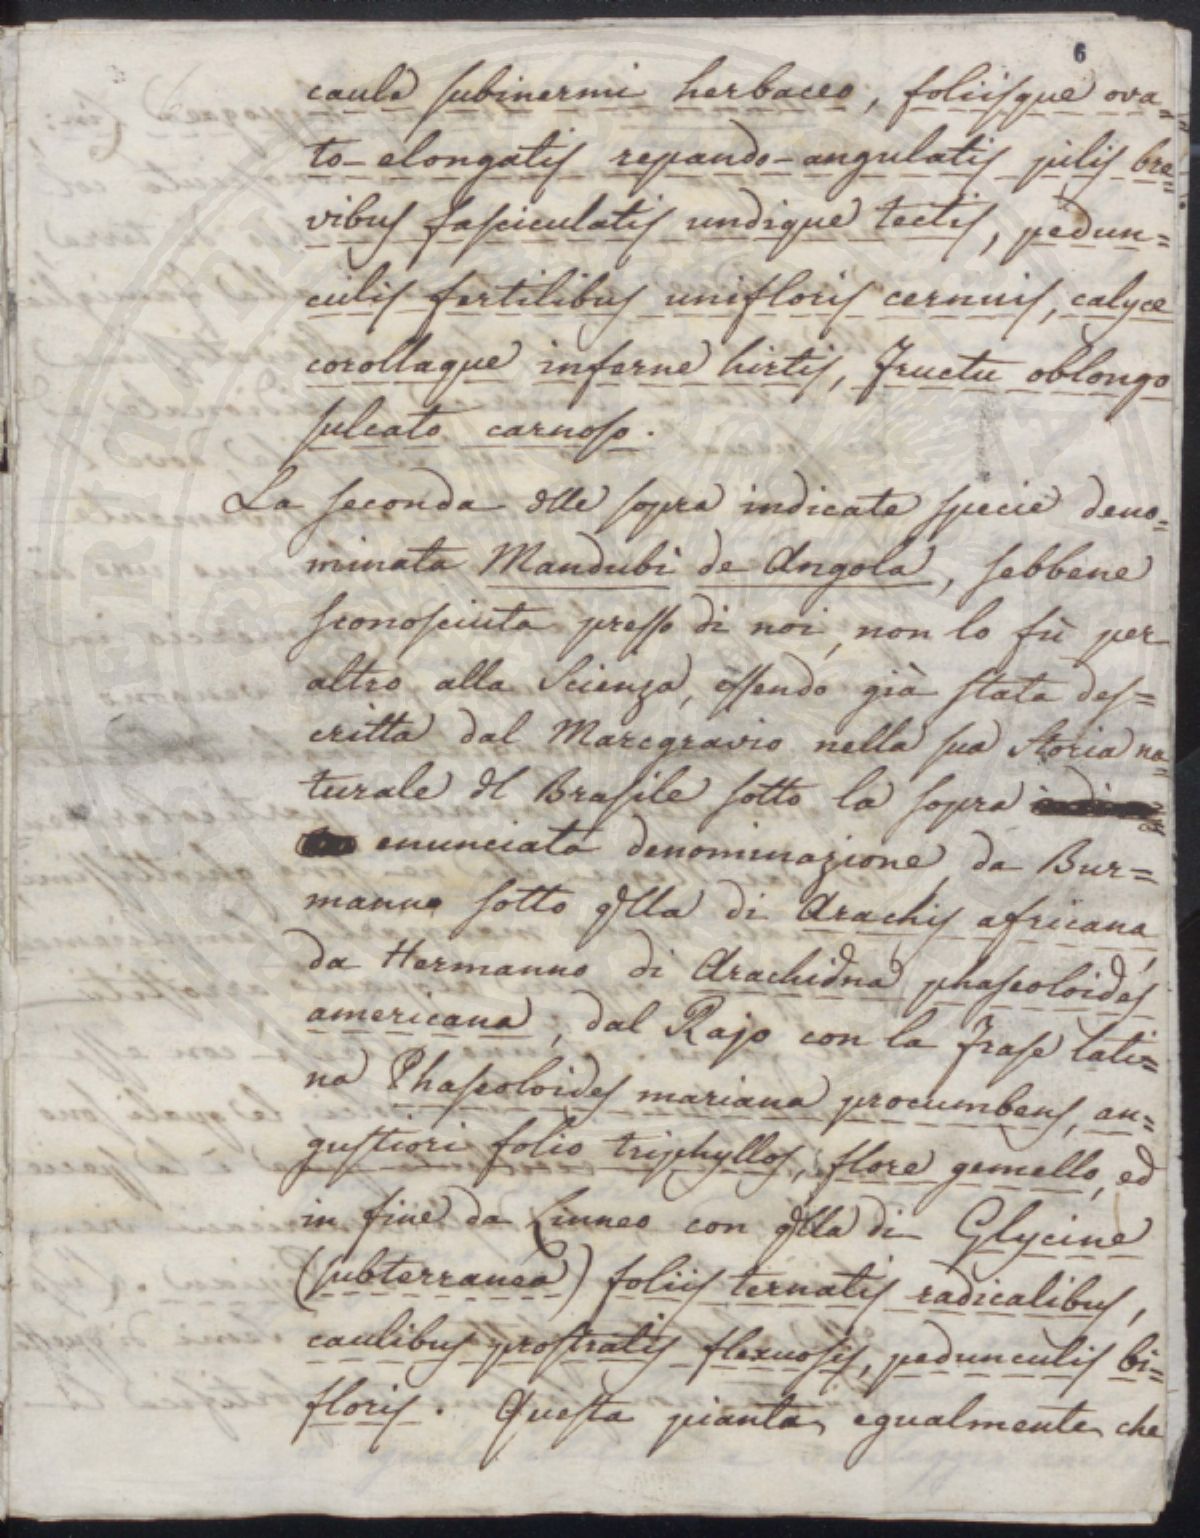 6
caule subinermi herbaceo, foliisque ova=
to-elongatis repando-angulatis pilis bre=
vibus fasciculatis undique tectis, pedun=
culis fertilibus unifloris cernuis, calyce
corollaque inferne hirtis, Fructu oblongo
sulcato carnoso.
La seconda dlle sopra indicate specie deno=
minata Mandubì de Angola, sebbene
sconosciuta presso di noi, non lo fù per
altro alla Scienza, essendo già stata des=
critta dal Marcgravio nella sua Storia na=
turale dl Brasile sotto la sopra
enunciata denominazione, da Bur=
manno sotto qlla di Arachis africana,
da Hermanno di Arachidna phaseoloides
americana, dal Rajo con la frase lati=
na Phaseoloides mariana procumbens, an=
gustiori folio triphyllos, flore gemello, ed
in fine da Linneo con qlla di Glycine
(subterranea) foliis ternatis radicalibus,
caulibus prostratis flexuosis, pedunculis bi=
floris. Questa pianta egualmente che